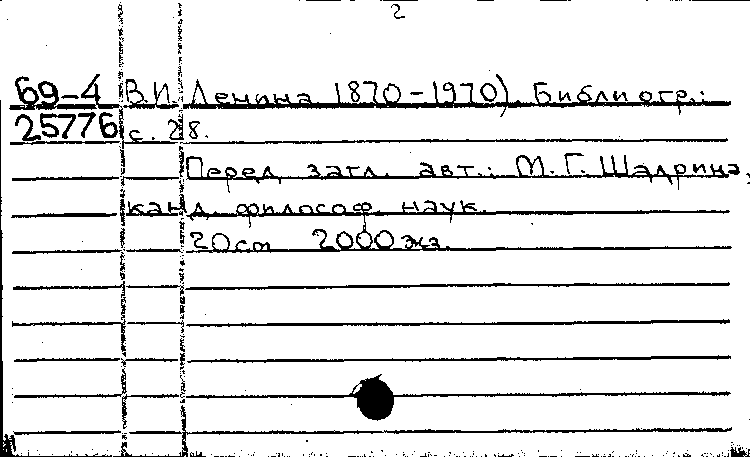 2
69-4 В.И. Ленина 1870-1970). Библиогр.:
25776 с. 28.
Перед загл. авт.: М.Г. Шадрина,
канд. философ. наук.
20см 2000 экз.